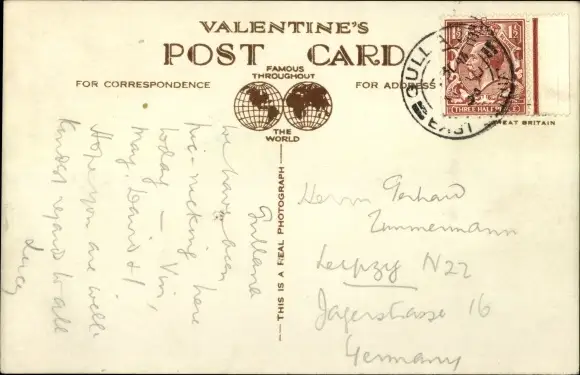 VALENTINE'S
POST CARD
FAMOUS
THROUGHOUT
THE
WORLD
FOR CORRESPONDENCE
FOR ADDRESS
THREE HALF PENCE
GREAT BRITAIN
THIS IS A REAL PHOTOGRAPH
Gullane
We have been
pic-nicking here
today — Vin,
May, David & I
Hope you are well.
Kindest regards to all
Lucy
Herrn Gerhard
Zimmermann
Leipzig N22
Jagerstrasse 16
Germany